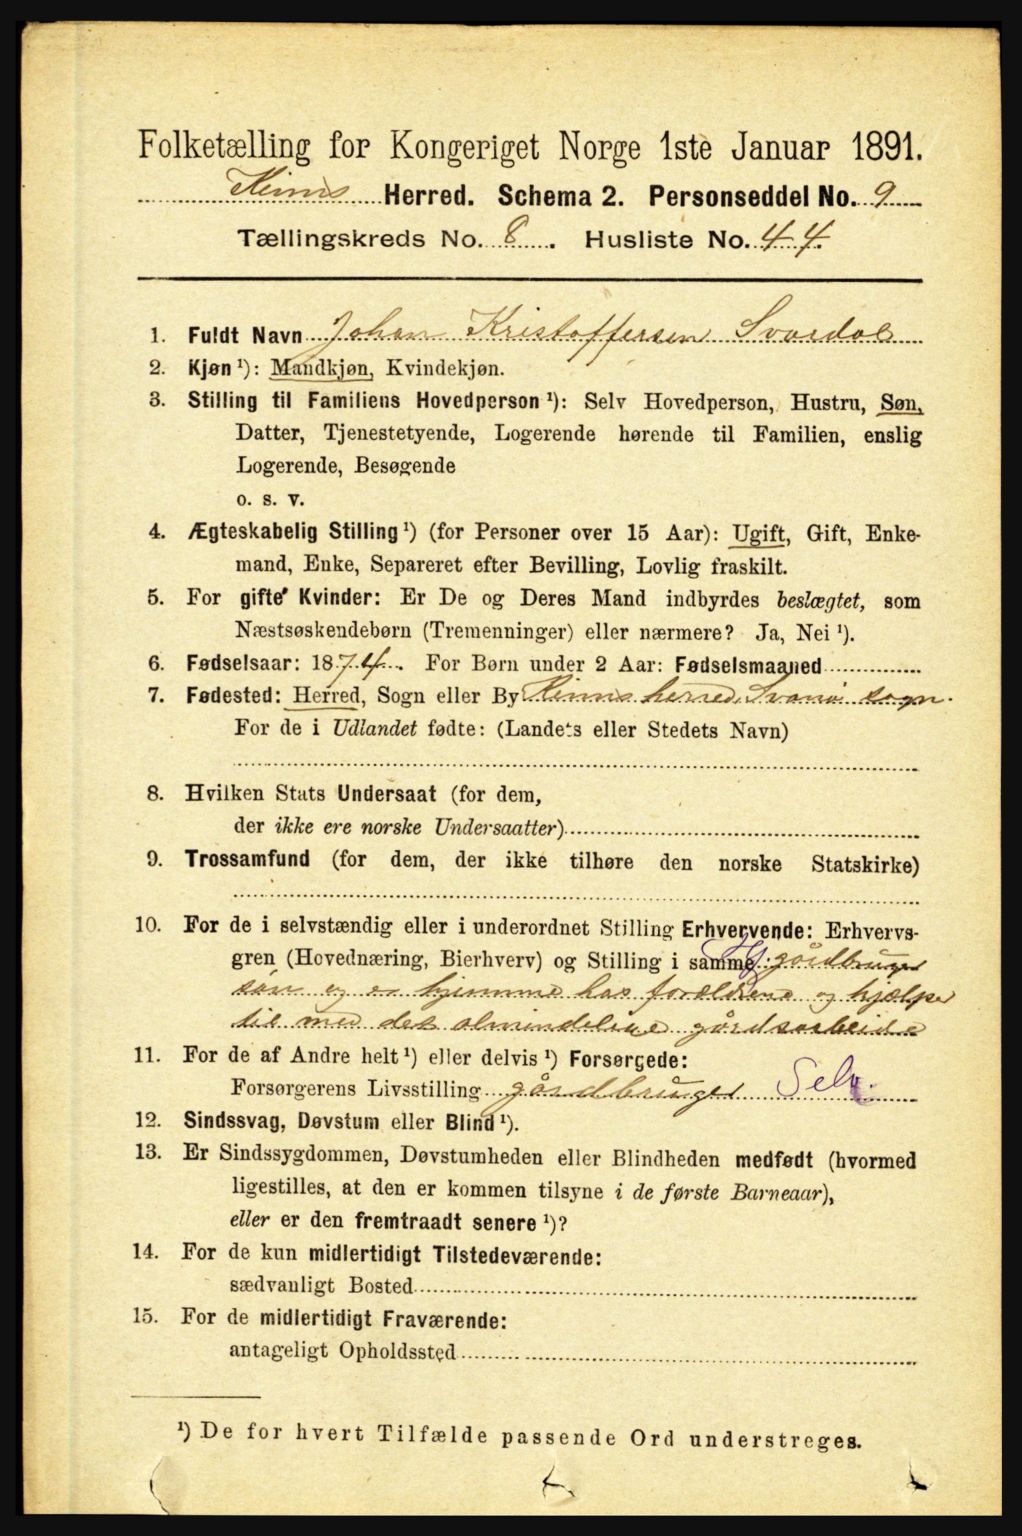 Folketælling for Kongeriget Norge 1ste Januar 1891.
Kinns Herred. Schema 2. Personseddel No. 9
Tællingskreds No. 8. Husliste No. 44.
1. Fuldt Navn Johan Kristoffersen Svardal
2. Kjøn ¹): Mandkjøn, Kvindekjøn.
3. Stilling til Familiens Hovedperson ¹): Selv Hovedperson, Hustru, Søn,
Datter, Tjenestetyende, Logerende hørende til Familien, enslig
Logerende, Besøgende
o. s. v.
4. Ægteskabelig Stilling ¹) (for Personer over 15 Aar): Ugift, Gift, Enke-
mand, Enke, Separeret efter Bevilling, Lovlig fraskilt.
5. For gifte Kvinder: Er De og Deres Mand indbyrdes beslægtet, som
Næstsøskendebørn (Tremenninger) eller nærmere? Ja, Nei ¹).
6. Fødselsaar: 1874. For Børn under 2 Aar: Fødselsmaaned
7. Fødested: Herred, Sogn eller By Kinns herred, Svanø sogn.
For de i Udlandet fødte: (Landets eller Stedets Navn)
8. Hvilken Stats Undersaat (for dem,
der ikke ere norske Undersaatter)
9. Trossamfund (for dem, der ikke tilhøre den norske Statskirke)
10. For de i selvstændig eller i underordnet Stilling Erhvervende: Erhvervs-
gren (Hovednæring, Bierhverv) og Stilling i samme: gårdbruger
søn og er hjemme hos forældrene og hjælper
til med det almindelige gårdsarbeide
11. For de af Andre helt ¹) eller delvis ¹) Forsørgede:
Forsørgerens Livsstilling gårdbruger Selv.
12. Sindssvag, Døvstum eller Blind ¹).
13. Er Sindssygdommen, Døvstumheden eller Blindheden medfødt (hvormed
ligestilles, at den er kommen tilsyne i de første Barneaar),
eller er den fremtraadt senere ¹)?
14. For de kun midlertidigt Tilstedeværende:
sædvanligt Bosted
15. For de midlertidigt Fraværende:
antageligt Opholdssted
¹) De for hvert Tilfælde passende Ord understreges.